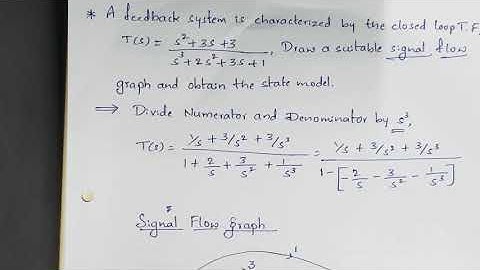 * A feedback system is characterized by the closed loop T.F,
T(s) = s²+3s+3 / s³+2s²+3s+1, Draw a suitable signal flow
graph and obtain the state model.
⟹ Divide Numerator and Denominator by s³,
T(s) = 1/s + 3/s² + 3/s³ / 1 + 2/s + 3/s² + 1/s³ = 1/s + 3/s² + 3/s³ / 1-[-2/s - 3/s² - 1/s³]
Signal Flow graph
1
3